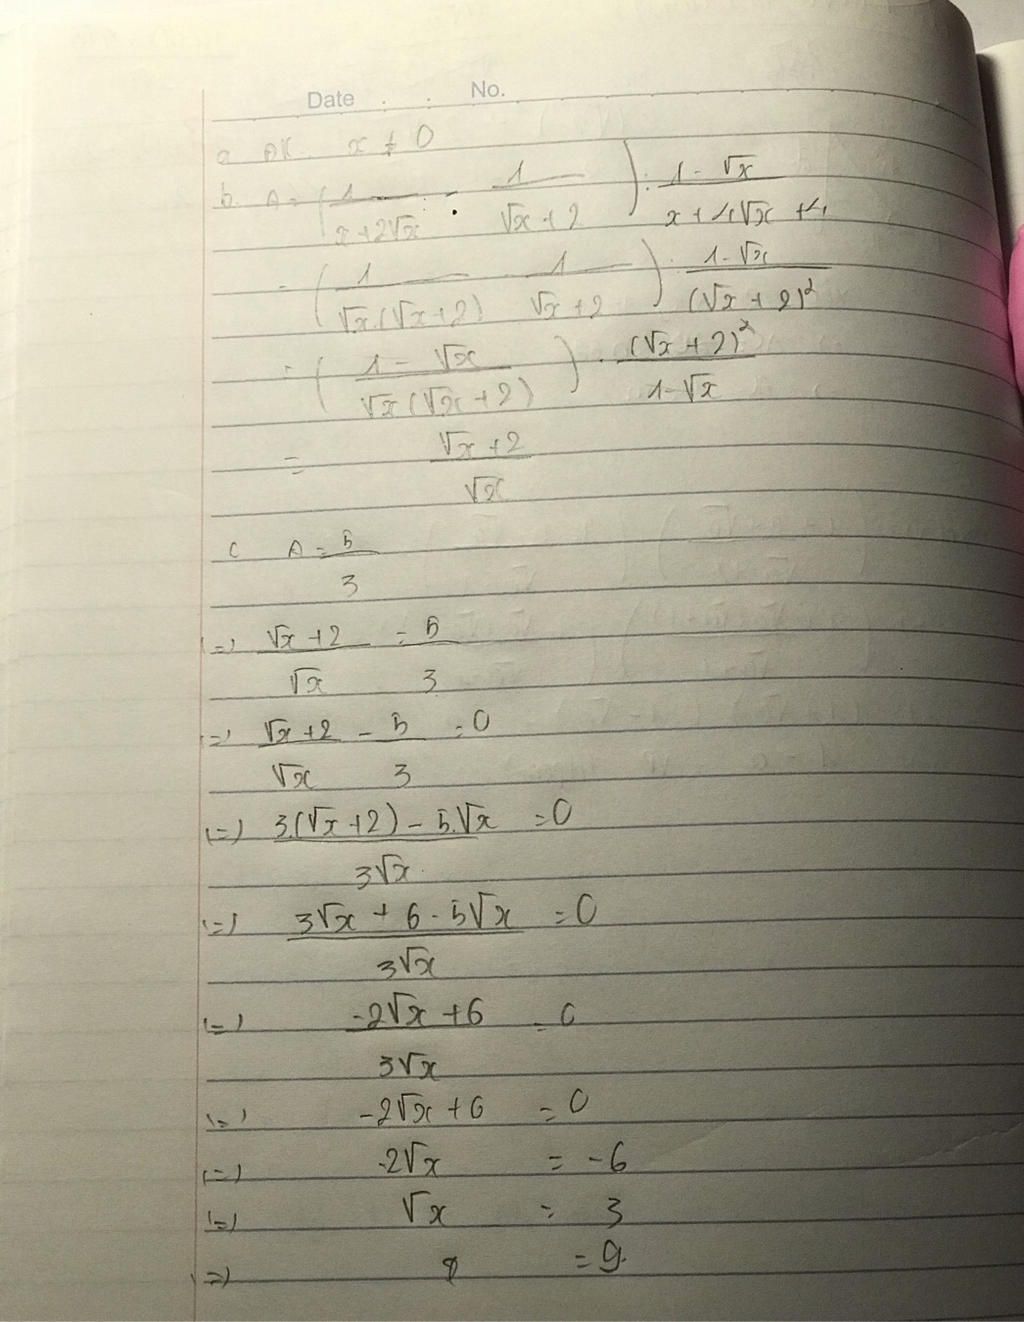 Date . . No.
a. ĐK. x ≠ 0
b. A = (1/(x+2√x) - 1/(√x+2)) : (1-√x)/(x+4√x+4)
= (1/(√x.(√x+2)) - 1/(√x+2)) : (1-√x)/(√x+2)²
= ((1-√x)/(√x(√x+2))) . (√x+2)²/(1-√x)
= (√x+2)/√x
c A = 5/3
(=) (√x+2)/√x = 5/3
(=) (√x+2)/√x - 5/3 = 0
(=) (3.(√x+2) - 5.√x)/(3√x) = 0
(=) (3√x + 6 - 5√x)/(3√x) = 0
(=) (-2√x+6)/(3√x) = 0
(=) -2√x+6 = 0
(=) -2√x = -6
(=) √x = 3
=) = 9.